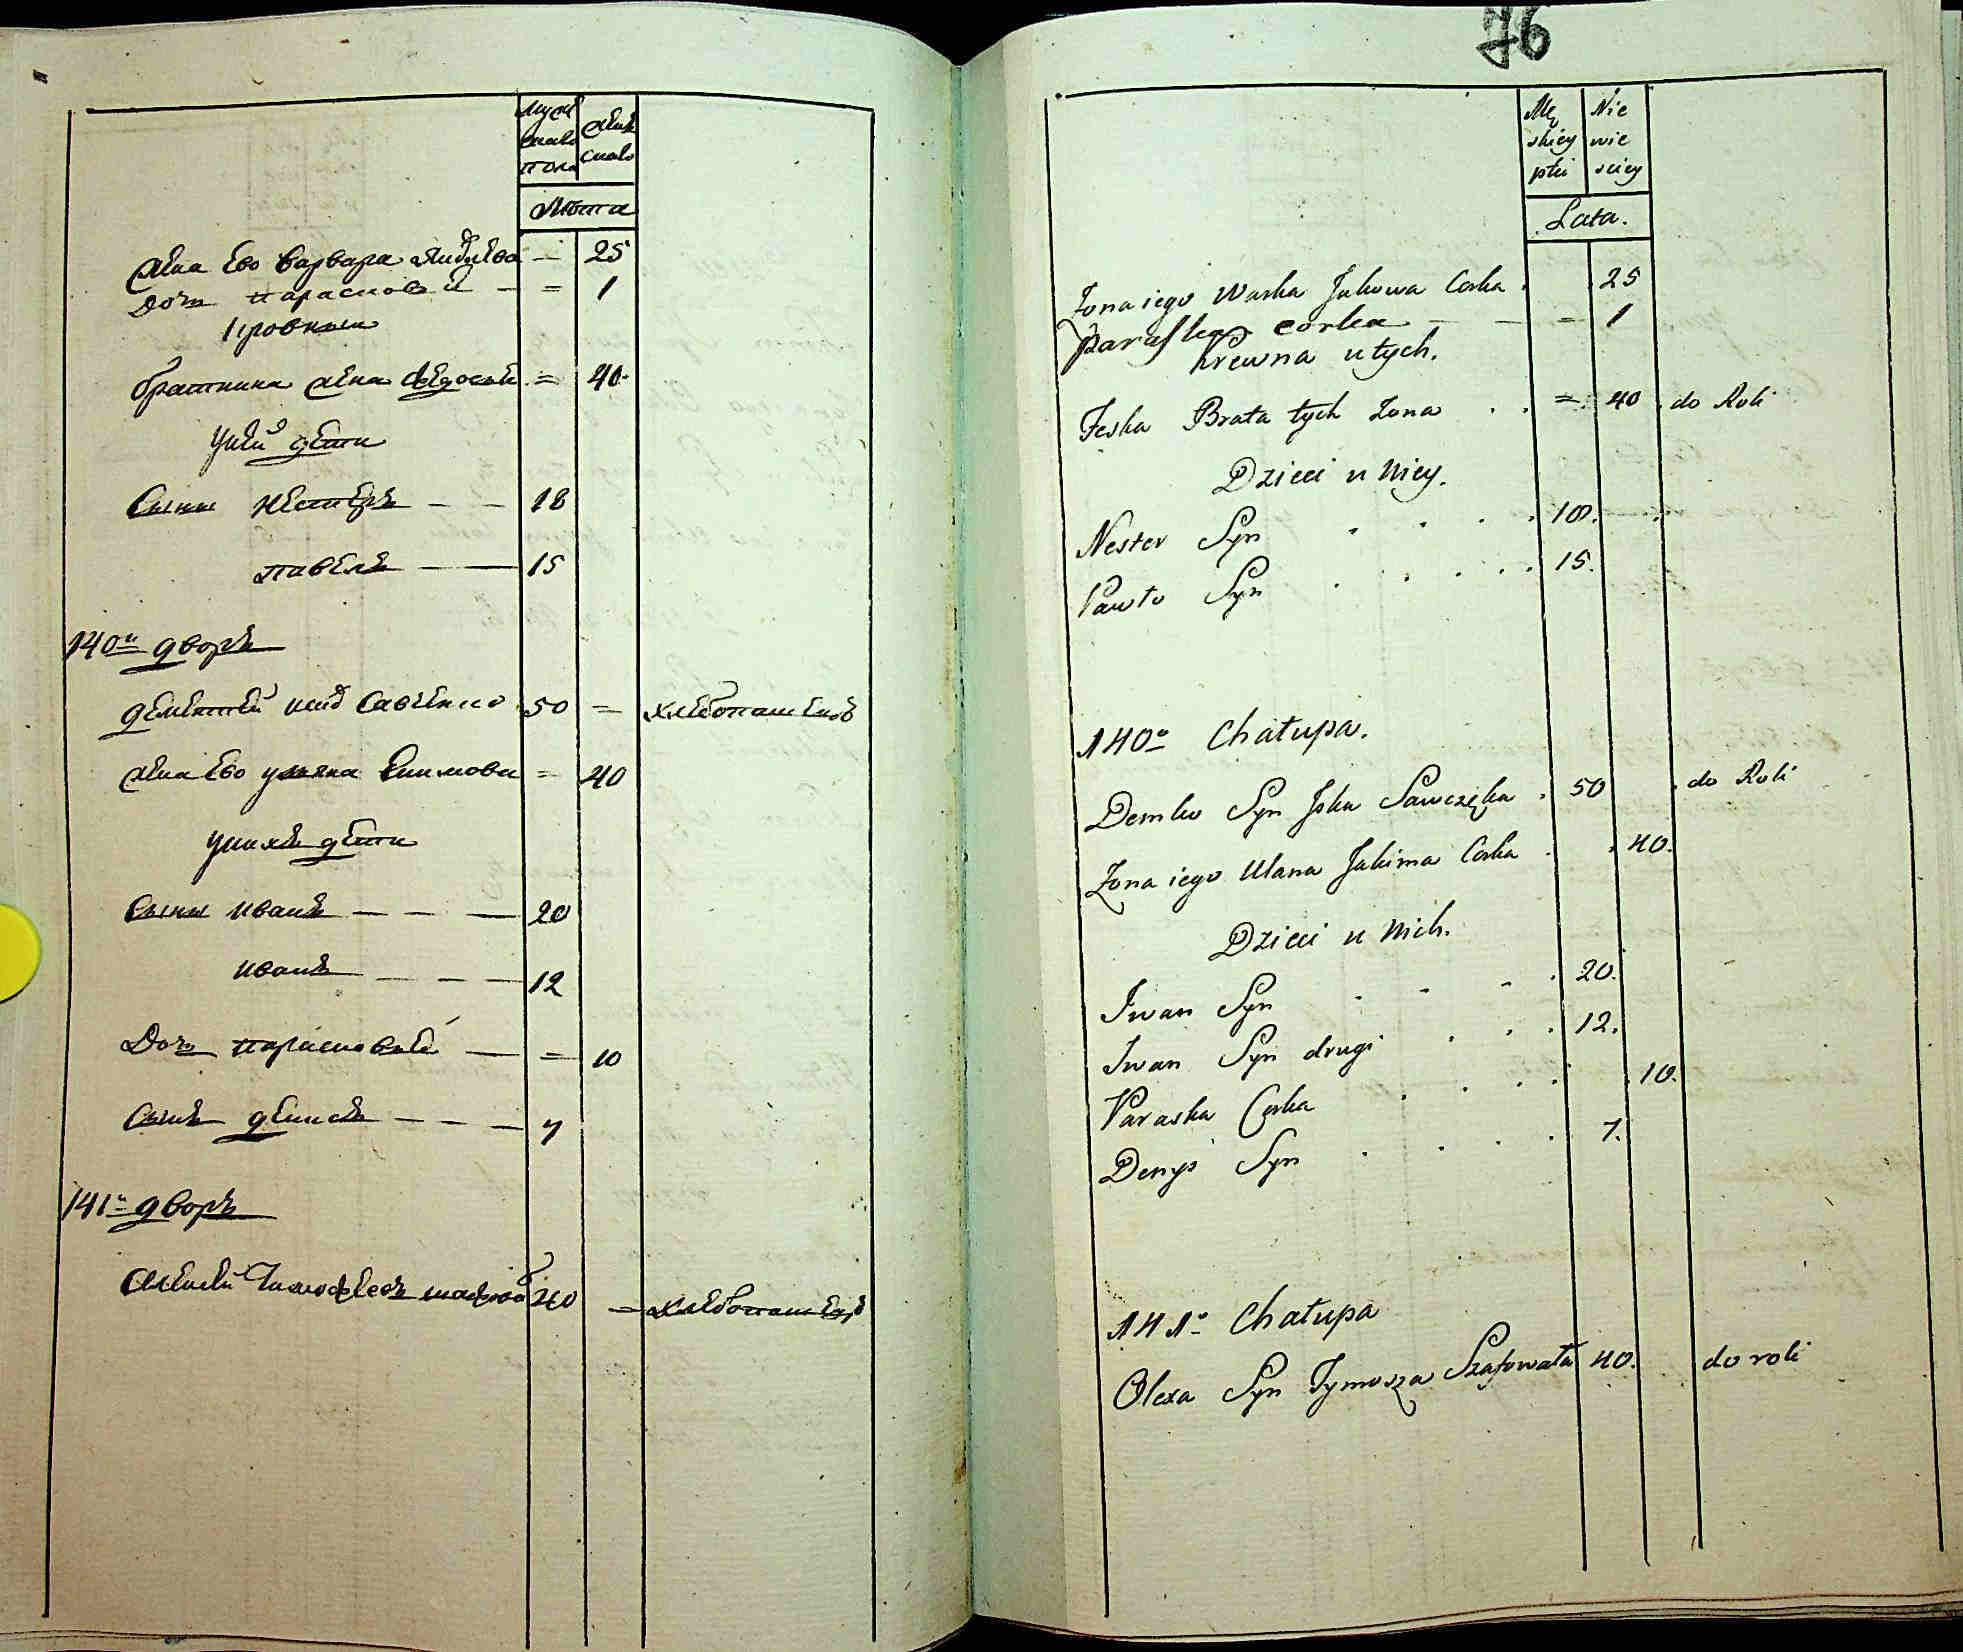 Муже
скаго
пола
Жен
скаго
Лѣта
Жена Ево Варвара Яковлева — 25
Дочь Парасковея — = 1
Кровныи
братнина жена Федосья = 40
У ней дети
Сыны Нестеръ — — 18
Павелъ — — 15
140й дворъ
Дементей Савченко 50 = хлебопашецъ
Жена Ево Ульяна Екимова = 40
У нихъ дети
Сыны Иванъ — — — 20
Иванъ — — — 12
Дочь Парасковея — = 10
Сынъ Денисъ — — — 7
141й дворъ
Алексей Тимофеевъ 40 = хлебопашецъ
76
Mę
skiey
płci
Nie
wie
sciey
Lata.
Zona iego Warka Jakowa Corka . . 25
Paraska corka — — = 1
Krewna u tych.
Feska Brata tych Zona . . = 40 . do Roli
Dzieci u Niey.
Nester Syn . . . . 18.
Pawło Syn . . . . . 15.
140o Chałupa.
Demko Syn Jska Sawczęka . 50 . do Roli
Zona iego Ulana Jakima Corka . . 40.
Dzieci u Nich.
Jwan Syn . . . . 20.
Jwan Syn drugi . . . 12.
Paraska Corka . . . . . 10.
Denys Syn . . . . 7.
141o Chałupa
Olexa Syn Tymosza Szafowała 40. do roli